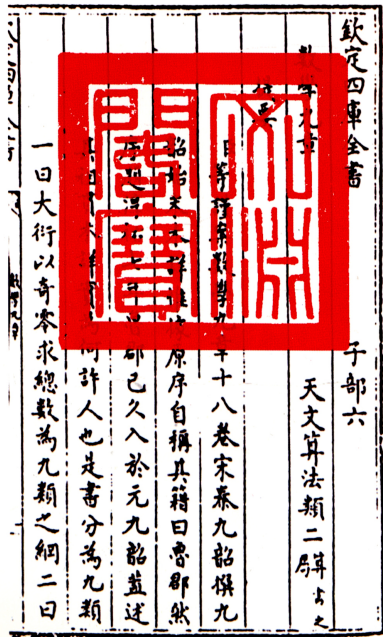 欽定四庫全書 子部六
數學九章 天文算法類二 算書之屬
提要
臣等謹案數學九章十八卷宋秦九韶撰九
韶始末未詳惟據原序自稱其籍曰魯郡然
序題淳 郡已久入於元九韶蓋述
其祖貫未詳實為何許人也是書分為九類
一曰大衍以奇零求總數為九類之綱二曰
數學九章
文淵閣寶